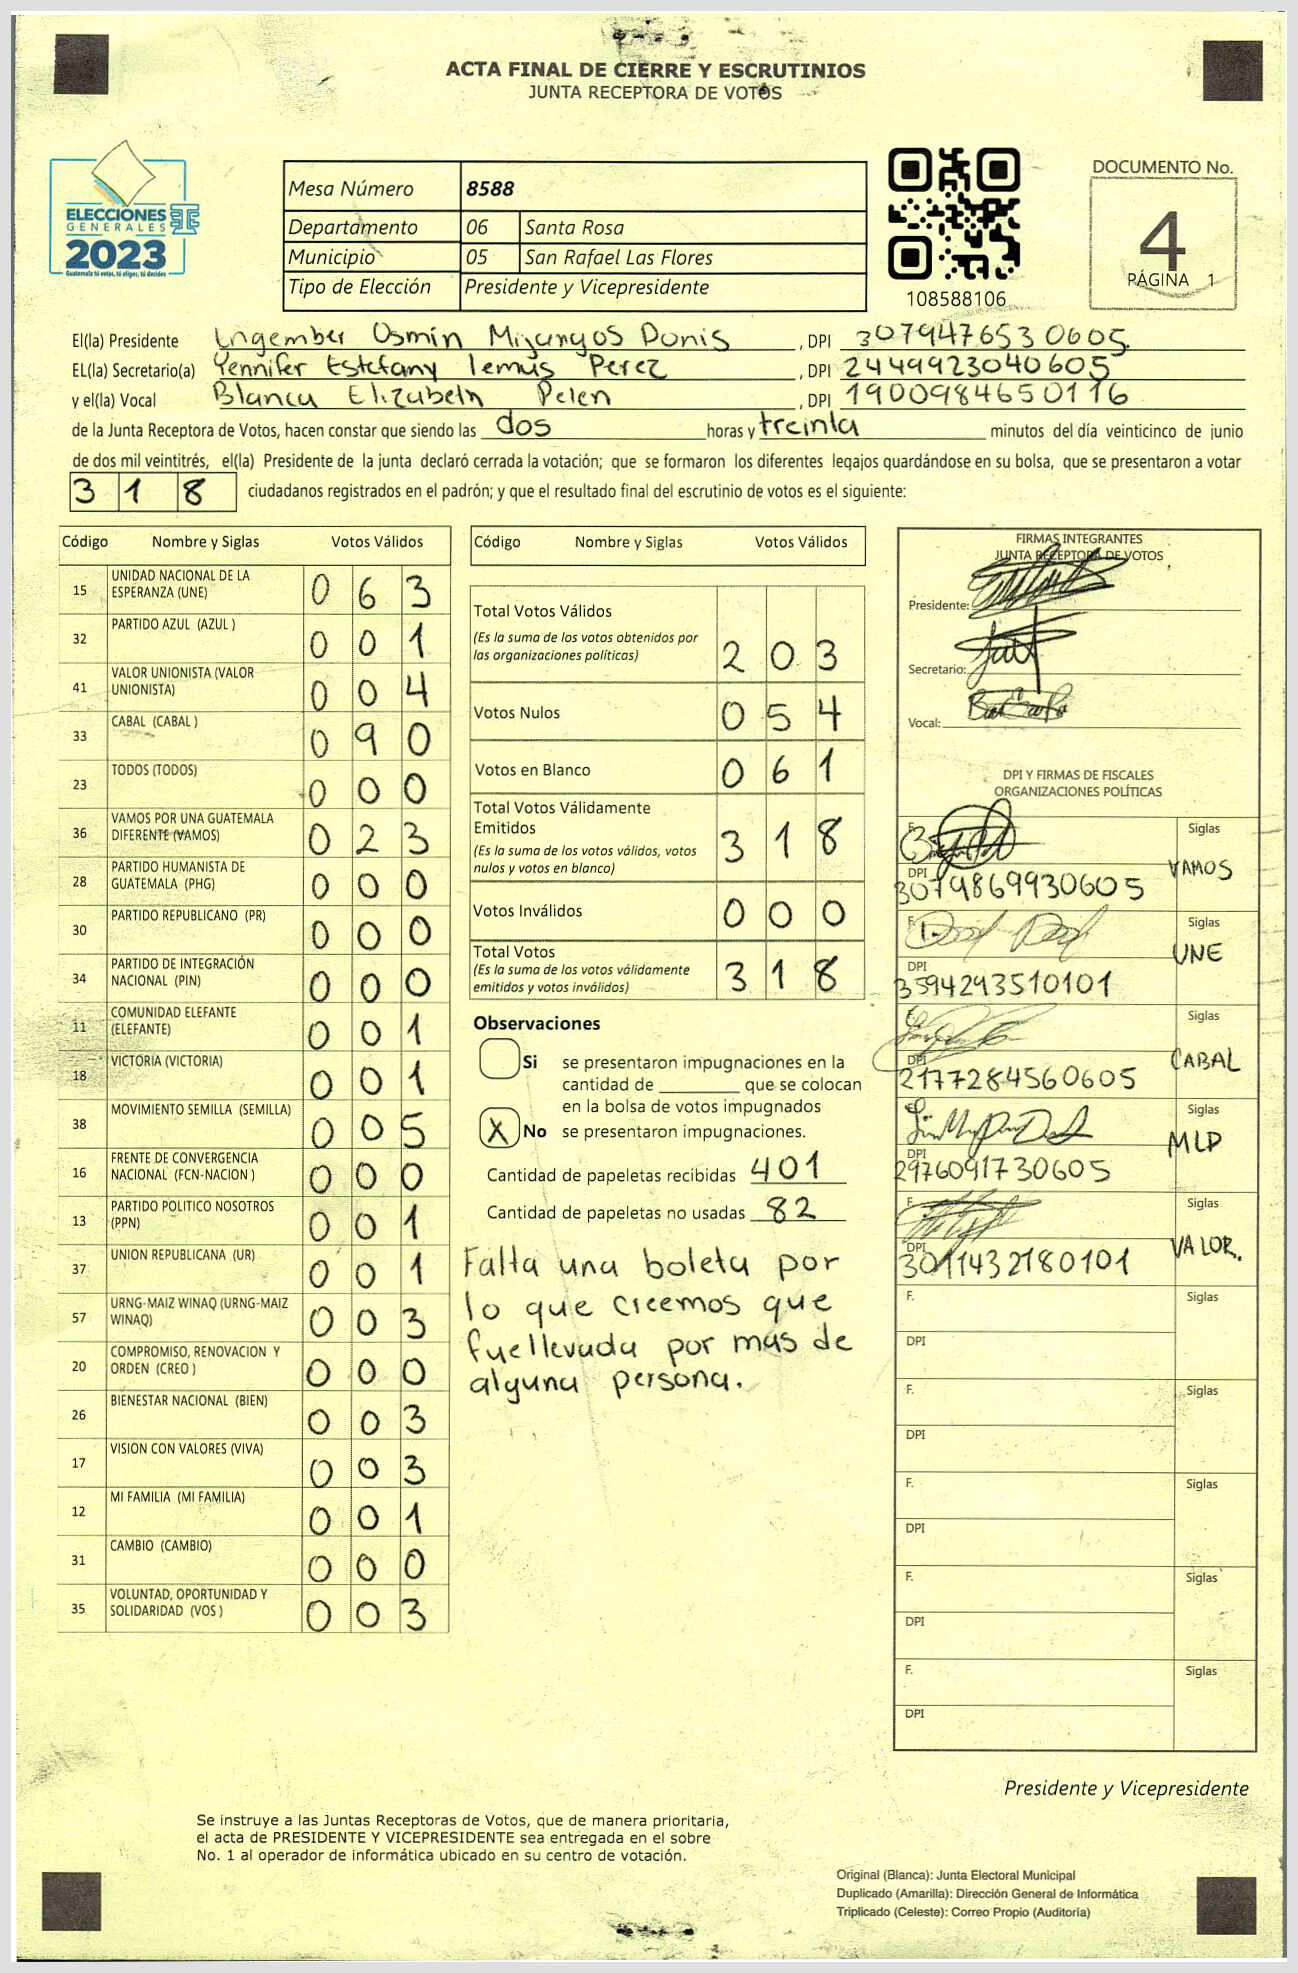 ACTA FINAL DE CIERRE Y ESCRUTINIOS
JUNTA RECEPTORA DE VOTOS
ELECCIONES
GENERALES
2023
Guatemala tú votas, tú eliges, tú decides
Mesa Número 8588
Departamento 06 Santa Rosa
Municipio 05 San Rafael Las Flores
Tipo de Elección Presidente y Vicepresidente
108588106
DOCUMENTO No.
4
PÁGINA 1
El(la) Presidente Engember Osmin Mijangos Donis, DPI 3079476530605
EL(la) Secretario(a) Yennifer Estefany lemus Perez, DPI 2449923040605
y el(la) Vocal Blanca Elizabeth Pelen, DPI 1900984650116
de la Junta Receptora de Votos, hacen constar que siendo las dos horas y treinta minutos del día veinticinco de junio
de dos mil veintitrés, el(la) Presidente de la junta declaró cerrada la votación; que se formaron los diferentes legajos guardándose en su bolsa, que se presentaron a votar
3 1 8 ciudadanos registrados en el padrón; y que el resultado final del escrutinio de votos es el siguiente:
Código Nombre y Siglas Votos Válidos
15 UNIDAD NACIONAL DE LA ESPERANZA (UNE) 0 6 3
32 PARTIDO AZUL (AZUL ) 0 0 1
41 VALOR UNIONISTA (VALOR UNIONISTA) 0 0 4
33 CABAL (CABAL ) 0 9 0
23 TODOS (TODOS) 0 0 0
36 VAMOS POR UNA GUATEMALA DIFERENTE (VAMOS) 0 2 3
28 PARTIDO HUMANISTA DE GUATEMALA (PHG) 0 0 0
30 PARTIDO REPUBLICANO (PR) 0 0 0
34 PARTIDO DE INTEGRACIÓN NACIONAL (PIN) 0 0 0
11 COMUNIDAD ELEFANTE (ELEFANTE) 0 0 1
18 VICTORIA (VICTORIA) 0 0 1
38 MOVIMIENTO SEMILLA (SEMILLA) 0 0 5
16 FRENTE DE CONVERGENCIA NACIONAL (FCN-NACION ) 0 0 0
13 PARTIDO POLITICO NOSOTROS (PPN) 0 0 1
37 UNION REPUBLICANA (UR) 0 0 1
57 URNG-MAIZ WINAQ (URNG-MAIZ WINAQ) 0 0 3
20 COMPROMISO, RENOVACION Y ORDEN (CREO ) 0 0 0
26 BIENESTAR NACIONAL (BIEN) 0 0 3
17 VISION CON VALORES (VIVA) 0 0 3
12 MI FAMILIA (MI FAMILIA) 0 0 1
31 CAMBIO (CAMBIO) 0 0 0
35 VOLUNTAD, OPORTUNIDAD Y SOLIDARIDAD (VOS ) 0 0 3
Código Nombre y Siglas Votos Válidos
Total Votos Válidos
(Es la suma de los votos obtenidos por
las organizaciones políticas) 2 0 3
Votos Nulos 0 5 4
Votos en Blanco 0 6 1
Total Votos Válidamente
Emitidos
(Es la suma de los votos válidos, votos
nulos y votos en blanco) 3 1 8
Votos Inválidos 0 0 0
Total Votos
(Es la suma de los votos válidamente
emitidos y votos inválidos) 3 1 8
Observaciones
Si se presentaron impugnaciones en la
cantidad de ________ que se colocan
en la bolsa de votos impugnados
X No se presentaron impugnaciones.
Cantidad de papeletas recibidas 401
Cantidad de papeletas no usadas 82
Falta una boleta por
lo que creemos que
fue llevada por mas de
alguna persona.
FIRMAS INTEGRANTES
JUNTA RECEPTORA DE VOTOS
Presidente:
Secretario:
Vocal:
DPI Y FIRMAS DE FISCALES
ORGANIZACIONES POLÍTICAS
F. Siglas VAMOS
DPI 3079869930605
F. Siglas UNE
DPI 3594293510101
F. Siglas CABAL
DPI 2177284560605
F. Siglas MLP
DPI 2976091730605
F. Siglas VALOR.
DPI 3011432180101
F. Siglas
DPI
F. Siglas
DPI
F. Siglas
DPI
F. Siglas
DPI
F. Siglas
DPI
Presidente y Vicepresidente
Se instruye a las Juntas Receptoras de Votos, que de manera prioritaria,
el acta de PRESIDENTE Y VICEPRESIDENTE sea entregada en el sobre
No. 1 al operador de informática ubicado en su centro de votación.
Original (Blanca): Junta Electoral Municipal
Duplicado (Amarilla): Dirección General de Informática
Triplicado (Celeste): Correo Propio (Auditoría)